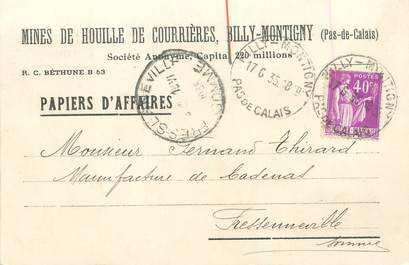 MINES DE HOUILLE DE COURRIÈRES, BILLY-MONTIGNY (Pas-de-Calais)
Société Anonyme, Capital 220 millions
R. C. BÉTHUNE B 53
BILLY-MONTIGNY
17 6 35
PAS DE CALAIS
POSTES
40c
BILLY-MONTIGNY
PAS DE CALAIS
FRESSENNEVILLE
SOMME
PAPIERS D'AFFAIRES
Monsieur Fernand Thirard
Manufacture de Cadenas
Fressenneville
Somme